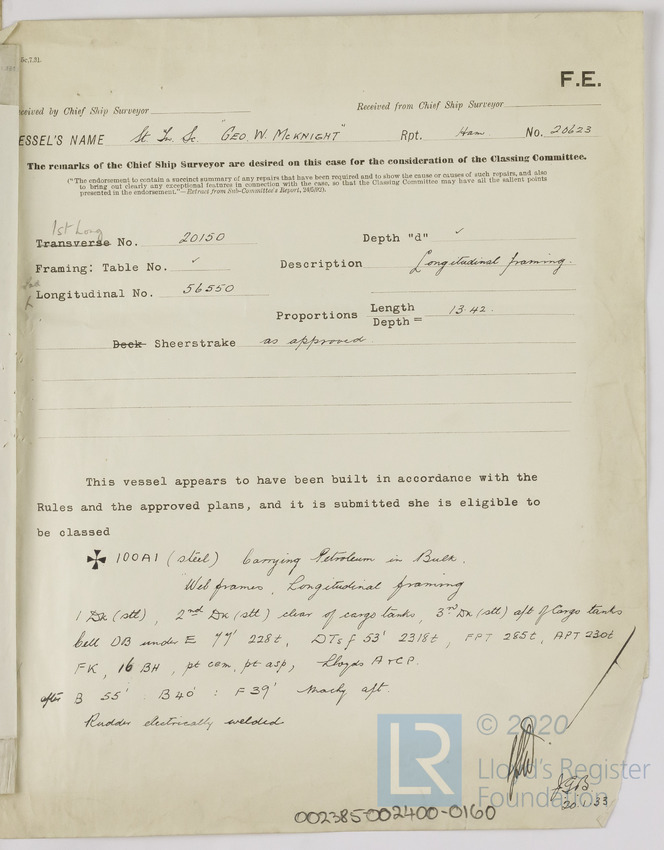 5c,7.31.
F.E.
eceived by Chief Ship Surveyor
Received from Chief Ship Surveyor
ESSEL'S NAME St. Tw. Sc. "GEO. W. McKNIGHT" Rpt. Ham No. 20623
The remarks of the Chief Ship Surveyor are desired on this case for the consideration of the Classing Committee.
("The endorsement to contain a succinct summary of any repairs that have been required and to show the cause or causes of such repairs, and also
to bring out clearly any exceptional features in connection with the case, so that the Classing Committee may have all the salient points
presented in the endorsement."—Extract from Sub-Committee's Report, 24/5/92).
1st Long
Transverse No. 20150 Depth "d" ✓
Framing: Table No. ✓ Description Longitudinal framing.
2nd
Longitudinal No. 56550
Proportions Length/Depth = 13.42.
Deck Sheerstrake as approved
This vessel appears to have been built in accordance with the
Rules and the approved plans, and it is submitted she is eligible to
be classed
✠ 100A1 (steel) Carrying Petroleum in Bulk.
Web frames, Longitudinal framing
1 Dk (stl), 2nd Dk (stl) clear of cargo tanks, 3rd Dk (stl) aft of Cargo tanks
Cell DB under E 77' 228t, DTs f 53' 2318t, FPT 285t, APT 230t
FK, 16 BH, pt cem, pt asp, Lloyds A & CP.
after B 55' B 40' : F 39' Machy aft.
Rudder electrically welded
20.1.33
002385-002400-0160
LR
© 2020
Lloyd's Register
Foundation